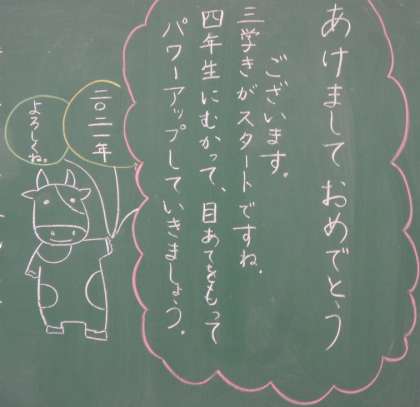 あけましておめでとう
ございます。
三学きがスタートですね。
四年生にむかって、目あてをもって
パワーアップしていきましょう。
二〇二一年
よろしくね。